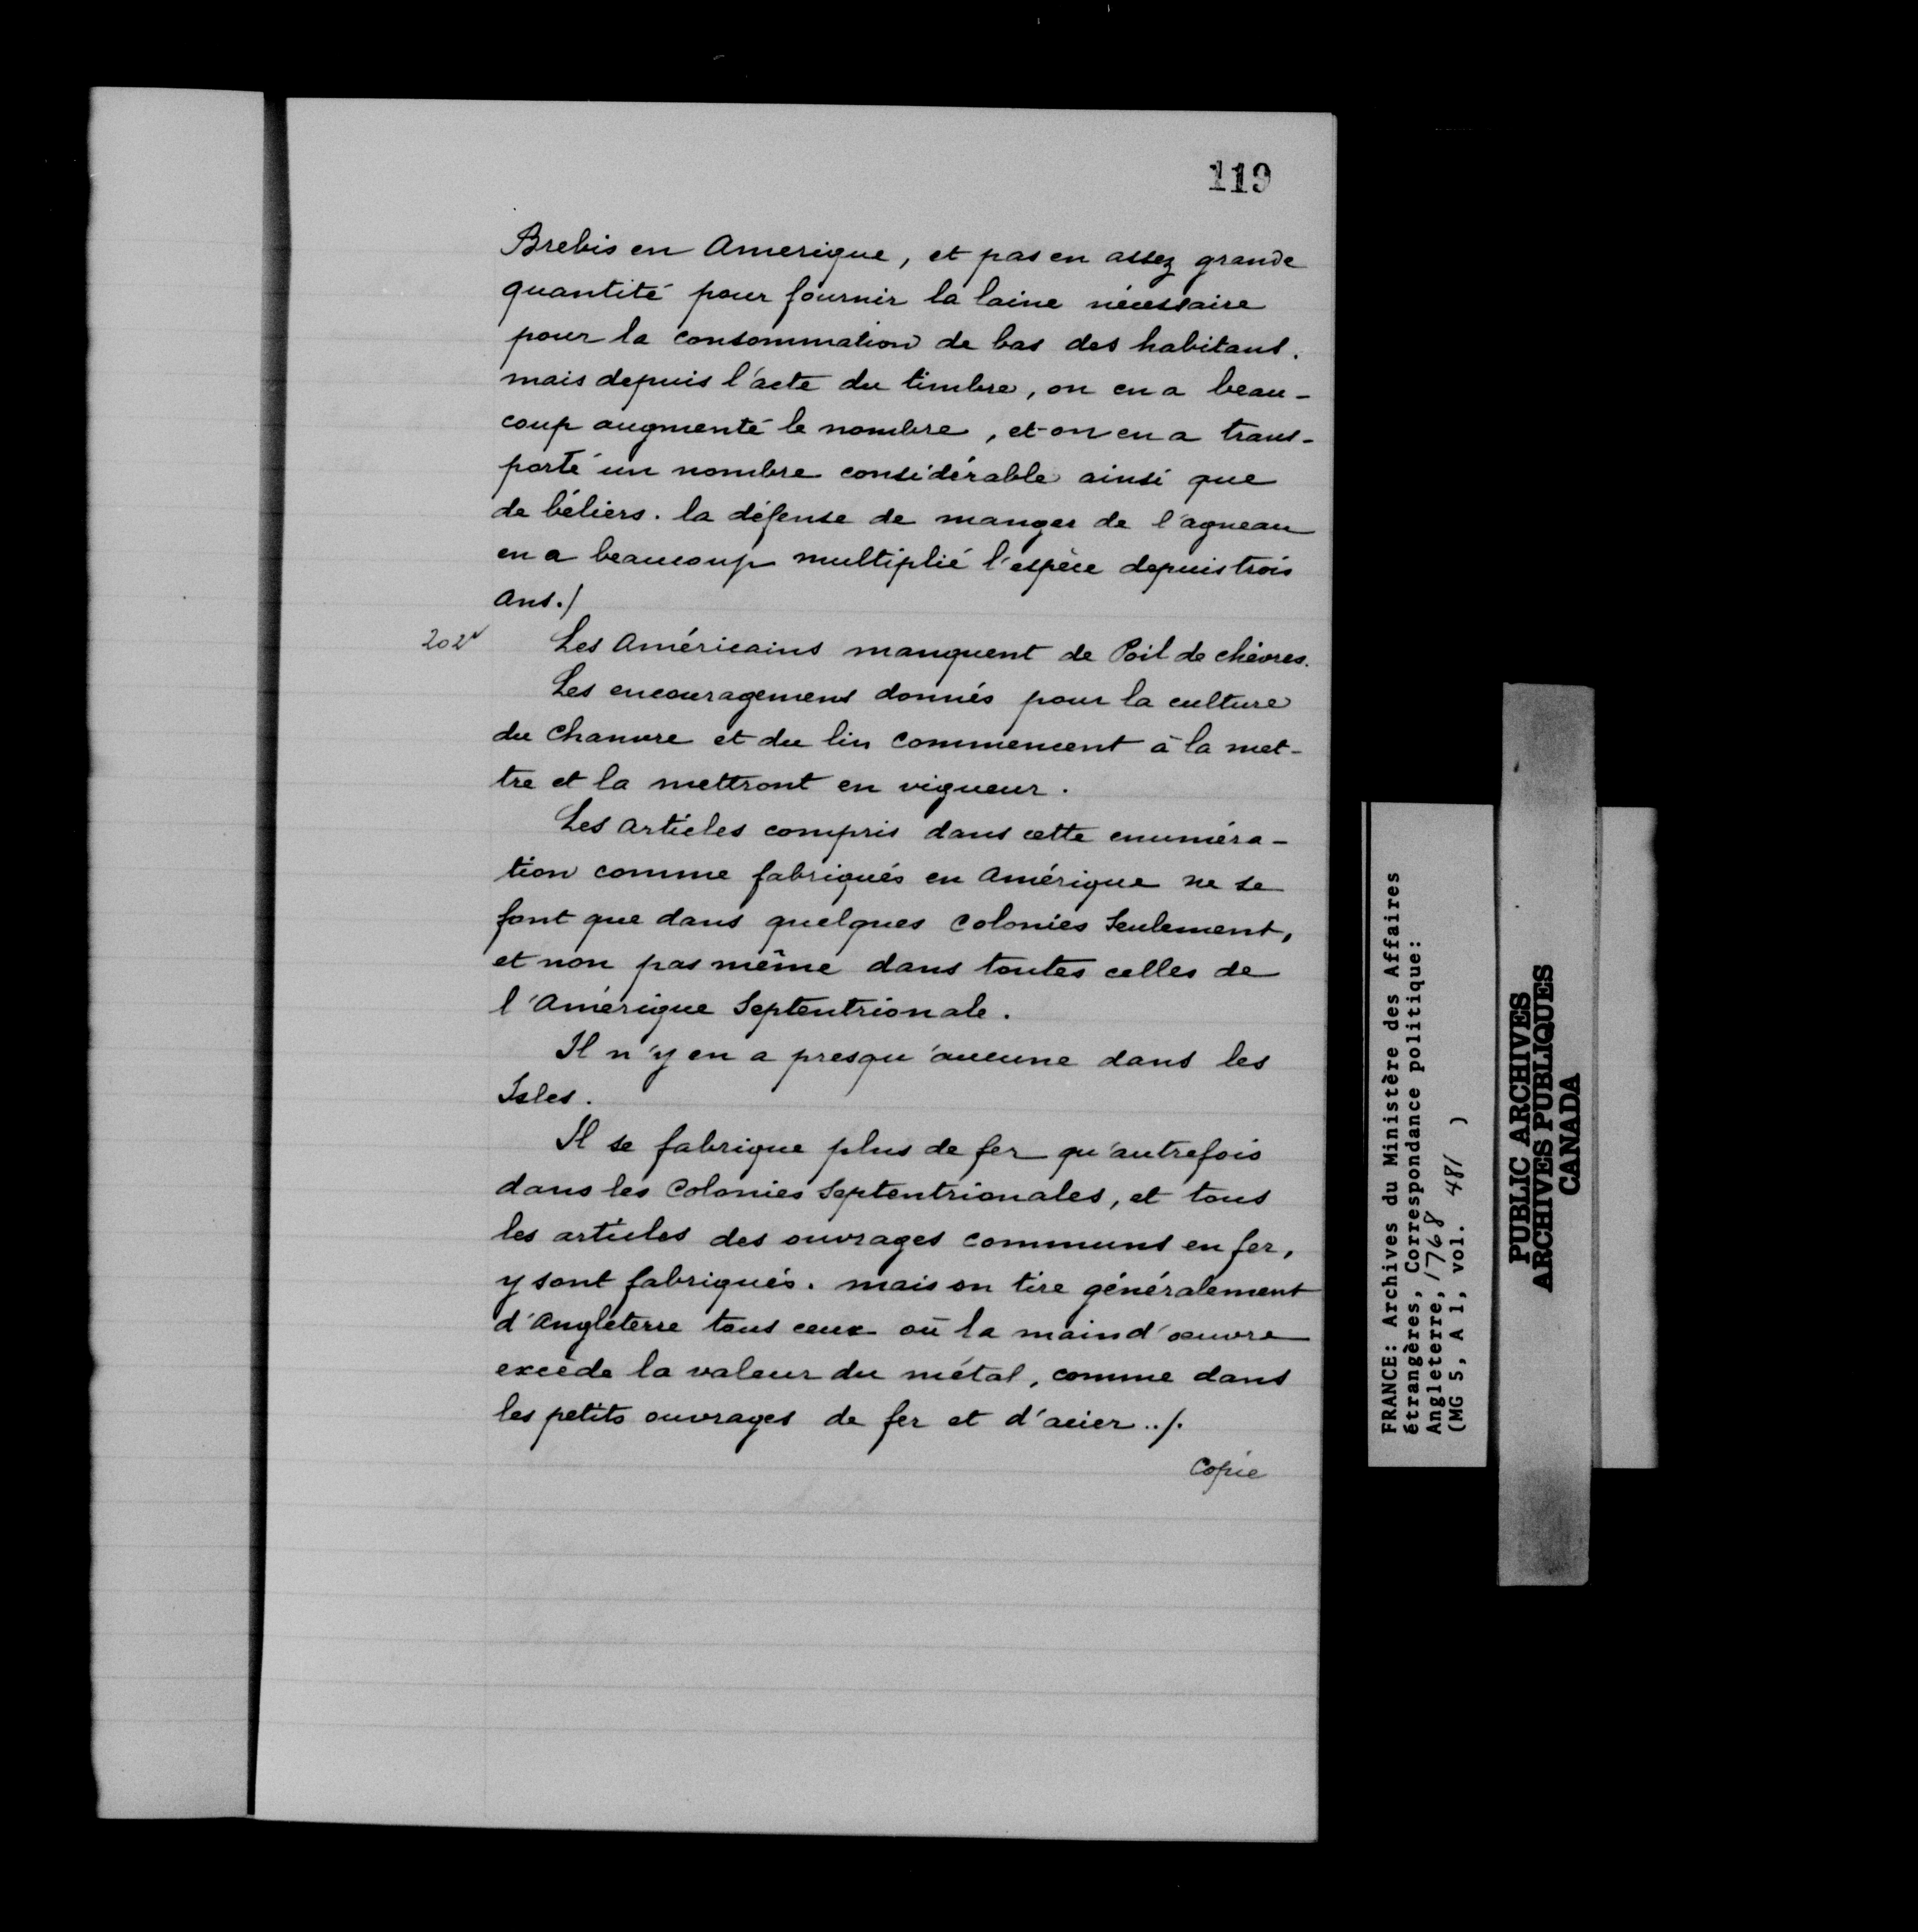 119
Brebis en Amerique, et pas en assez grande
quantité pour fournir la laine nécessaire
pour la consommation de bas des habitans.
mais depuis l'acte du timbre, on en a beau-
coup augmenté le nombre, et on en a trans-
porté un nombre considérable ainsi que
de béliers. la défense de manger de l'agneau
en a beaucoup multiplié l'espèce depuis trois
ans./
202v Les Américains manquent de Poil de chèvres.
Les encouragemens donnés pour la culture
du Chanvre et du lin commencent à la met-
tre et la mettront en vigueur.
Les articles compris dans cette enuméra-
tion comme fabriqués en Amérique ne se
font que dans quelques Colonies Seulement,
et non pas même dans toutes celles de
l'Amérique Septentrionale.
Il n'y en a presqu'aucune dans les
Isles.
Il se fabrique plus de fer qu'autrefois
dans les Colonies Septentrionales, et tous
les articles des ouvrages communs en fer,
y sont fabriqués. mais on tire généralement
d'Angleterre tous ceux où la main d'œuvre
excède la valeur du métal, comme dans
les petits ouvrages de fer et d'acier../.
Copie
FRANCE: Archives du Ministère des Affaires
étrangères, Correspondance politique:
Angleterre, 1768
(MG 5, A 1, vol. 481 )
PUBLIC ARCHIVES
ARCHIVES PUBLIQUES
CANADA